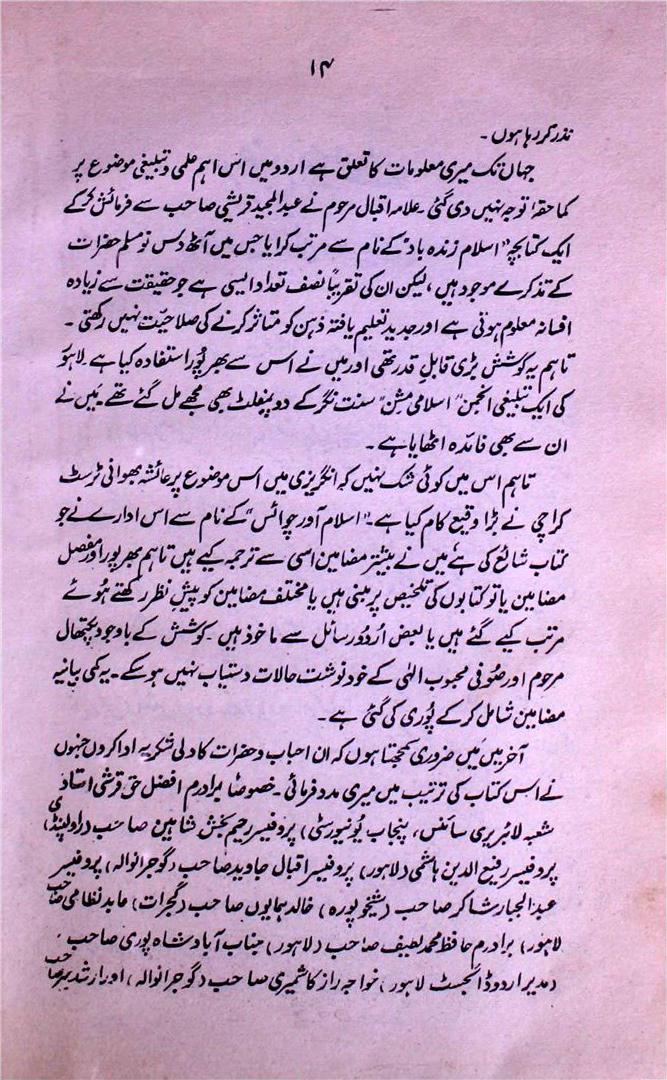 ۱۴
نذر کر رہا ہوں۔
جہاں تک میری معلومات کا تعلق ہے اردو میں اس اہم علمی و تبلیغی موضوع پر
کماحقہٗ توجہ نہیں دی گئی۔ علامہ اقبال مرحوم نے عبدالمجید قریشی صاحب سے فرمائش کرکے
ایک کتابچہ "اسلام زندہ باد" کے نام سے مرتب کرایا جس میں آٹھ دس نو مسلم حضرات
کے تذکرے موجود ہیں، لیکن ان کی تقریباً نصف تعداد ایسی ہے جو حقیقت سے زیادہ
افسانہ معلوم ہوتی ہے اور جدید تعلیم یافتہ ذہن کو متاثر کرنے کی صلاحیّت نہیں رکھتی۔
تاہم یہ کوشش بڑی قابلِ قدر تھی اور میں نے اس سے بھرپُور استفادہ کیا ہے۔ لاہور
کی ایک تبلیغی انجمن "اسلامی مشن" سنت نگر کے دو پمفلٹ بھی مجھے مل گئے تھے۔ مَیں نے
ان سے بھی فائدہ اٹھایا ہے۔
تاہم اس میں کوئی شک نہیں کہ انگریزی میں اس موضوع پر عائشہ بھوانی ٹرسٹ
کراچی نے بڑا وقیع کام کیا ہے۔ "اسلام آور چوائس" کے نام سے اس ادارے نے جو
کتاب شائع کی ہے مَیں نے بیشتر مضامین اسی سے ترجمہ کیے ہیں تاہم بھرپور اور مفصل
مضامین یا تو کتابوں کی تلخیص پر مبنی ہیں یا مختلف مضامین کو پیشِ نظر رکھتے ہُوئے
مرتب کیے گئے ہیں یا بعض اُردو رسائل سے ماخوذ ہیں۔ کوشش کے باوجود پکتھال
مرحوم اور صُوفی محبوب الٰہی کے خودنوشت حالات دستیاب نہیں ہو سکے۔ یہ کمی بیانیہ
مضامین شامل کرکے پُوری کی گئی ہے۔
آخر میں مَیں ضروری سمجھتا ہوں کہ ان احباب و حضرات کا دلی شکریہ ادا کروں جنہوں
نے اس کتاب کی ترتیب میں میری مدد فرمائی۔ خصوصاً برادرم افضل حق قرشی استاد
شعبہ لائبریری سائنس، پنجاب یُونیورسٹی) پروفیسر رحیم بخش شاہین صاحب (راولپنڈی)
پروفیسر رفیع الدین ہاشمی (لاہور) پروفیسر اقبال جاوید صاحب (گوجرانوالہ) پروفیسر
عبدالجبار شاکر صاحب (شیخوپورہ) خالد ہمایوں صاحب (گجرات) عابد نظامی صاحب
لاہور) برادرم حافظ محمد لطیف صاحب (لاہور) جناب آباد شاہ پوری صاحب۔
(مدیر اردو ڈائجسٹ لاہور) خواجہ راز کاشمیری صاحب (گوجرانوالہ) اور ارشد میر صاحب